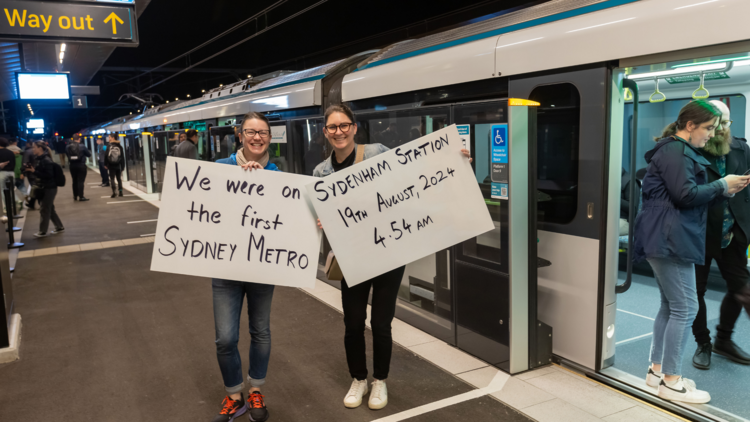 Way out ↑
1
We were on
the first
SYDNEY METRO
SYDENHAM STATION
19TH AUGUST, 2024
4.54 AM